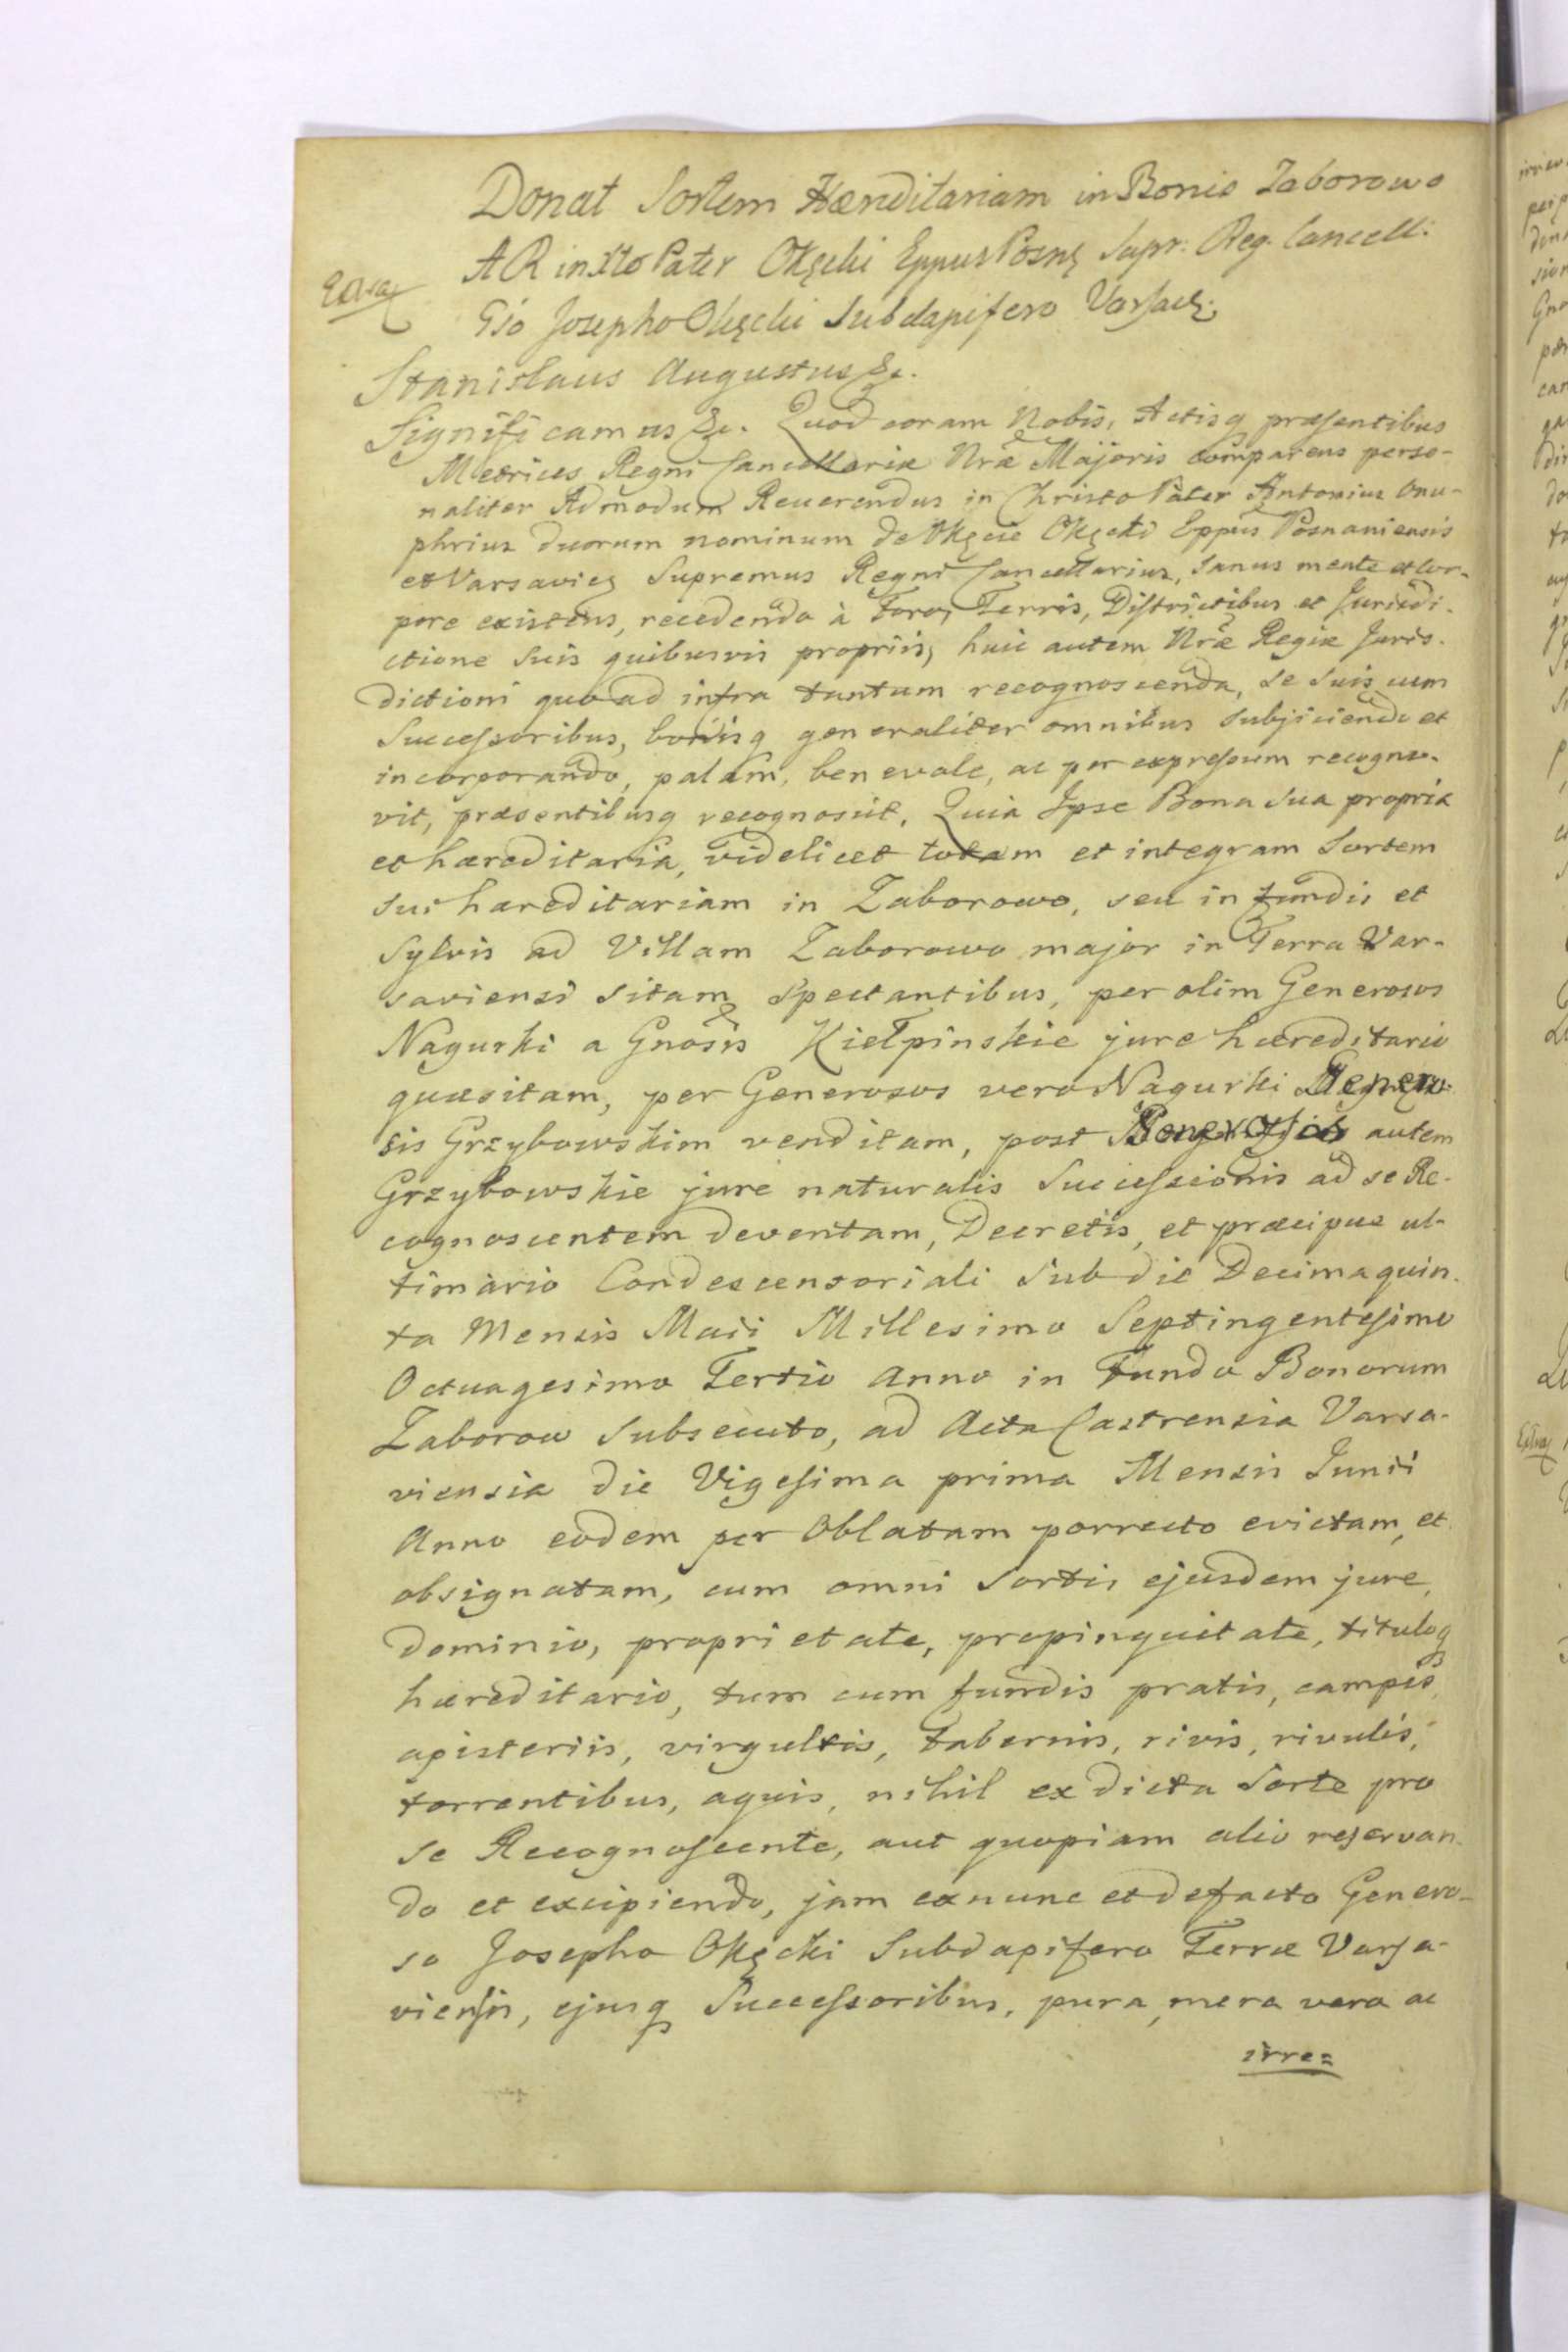 Donat Sortem Hæreditariam in Bonis Zaborowo
A R in Xto Pater Okęcki Eppus Posnę Supr: Reg. Cancell:
Gso Josepho Okęcki Subdapifero Varsaę.
Stanislaus Augustus &c.
Significamus &c. Quod coram Nobis, Actisq præsentibus
Metrices Regni Cancellariæ Nræ Majoris comparens perso-
naliter Admodum Reuerendus in Christo Pater Antonius Onu-
phrius duorum nominum de Okęcie Okęcki Eppus Posnaniensis
et Varsavieę Supremus Regni Cancellarius, Sanus mente et Cor-
pore existens, recedendo à Foro, Terris, Districtibus et Jurisdi-
ctione suis quibusvis propriis, huic autem Nræ Regiæ Juris-
dictioni quoad infra tantum recognoscenda, se suis cum
Successoribus, bonisq generaliter omnibus subjiciendo et
incorporando, palam, benevole, ac per expressum recogno-
vit, præsentibusq recognoscit, Quia Ipse Bona sua propria
et hæreditaria, videlicet totam et integram Sortem
sui hæreditariam in Zaborowo, seu in fundis et
Sylvis ad Villam Zaborowo major in Terra Var-
saviensi sitam spectantibus, per olim Generosos
Nagurki a Gnosis Kiełpinskie jure hæreditario
quæsitam, per Generosos vero Nagurki Genero-
sis Grzybowskim venditam, post Generosos autem
Grzybowskie jure naturalis Successionis ad se Re-
cognoscentem deventam, Decretis, et præcipue ul-
timario Condescensoriali sub die Decima quin-
ta Mensis Maii Millesimo Septingentesimo
Octuagesimo Tertio Anno in Fundo Bonorum
Zaborow Subsecuto, ad Acta Castrensia Varsa-
viensia die Vigesima prima Mensis Junii
Anno eodem per Oblatam porrecto evictam, et
obsignatam, cum omni Sortis ejusdem jure,
dominio, proprietate, propinquitate, tituloq
hæreditario, tum cum fundis pratis, campis,
apisteriis, virgultis, tabernis, rivis, rivulis,
torrentibus, aquis, nihil ex dicta Sorte pro
se Recognoscente, aut quopiam alio reservan-
do et excipiendo, jam ex nunc et de facto Genero-
so Josepho Okęcki Subdapifero Terræ Varsa-
viensis, ejusq Successoribus, pura, mera vera ac
irre=